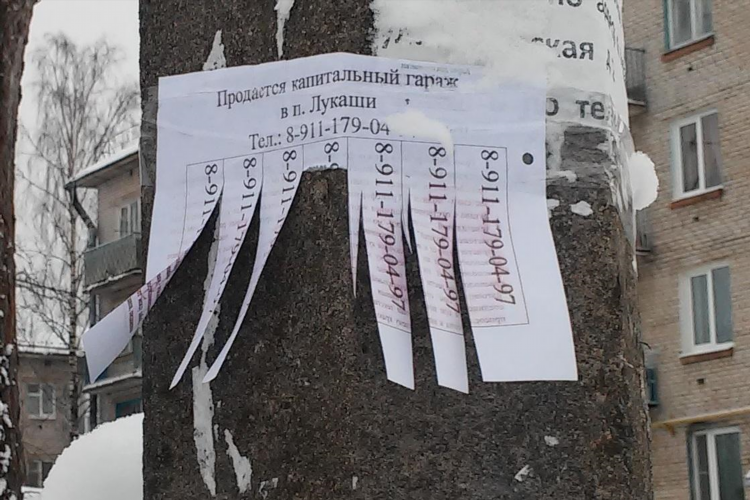 кая
о те
Продается капитальный гараж
в п. Лукаши
Тел.: 8-911-179-04
8-911
8-911-179
8-911
8-
8-911-179-04-97
8-911-179-04-97
8-911-179-04-97